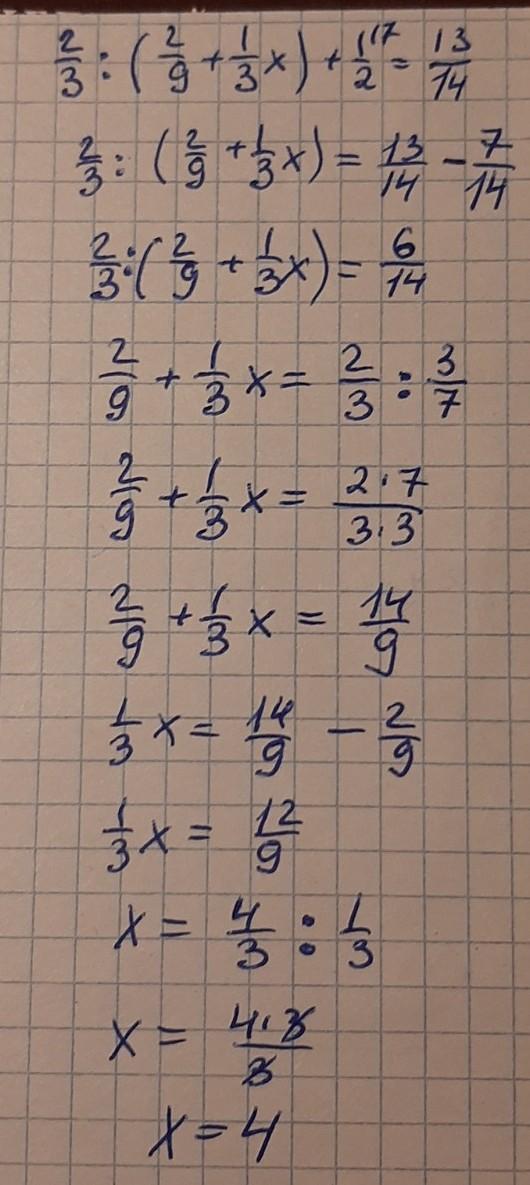 2/3 : (2/9 + 1/3 x) + 1/2 ⁽⁷ = 13/14
2/3 : (2/9 + 1/3 x) = 13/14 - 7/14
2/3 : (2/9 + 1/3 x) = 6/14
2/9 + 1/3 x = 2/3 : 3/7
2/9 + 1/3 x = 2·7/3·3
2/9 + 1/3 x = 14/9
1/3 x = 14/9 - 2/9
1/3 x = 12/9
x = 4/3 : 1/3
x = 4·3/3
x = 4